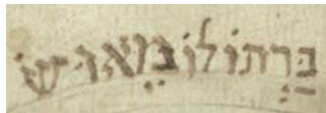 בַּרְתוֹלוֹמֵאוּשׂ